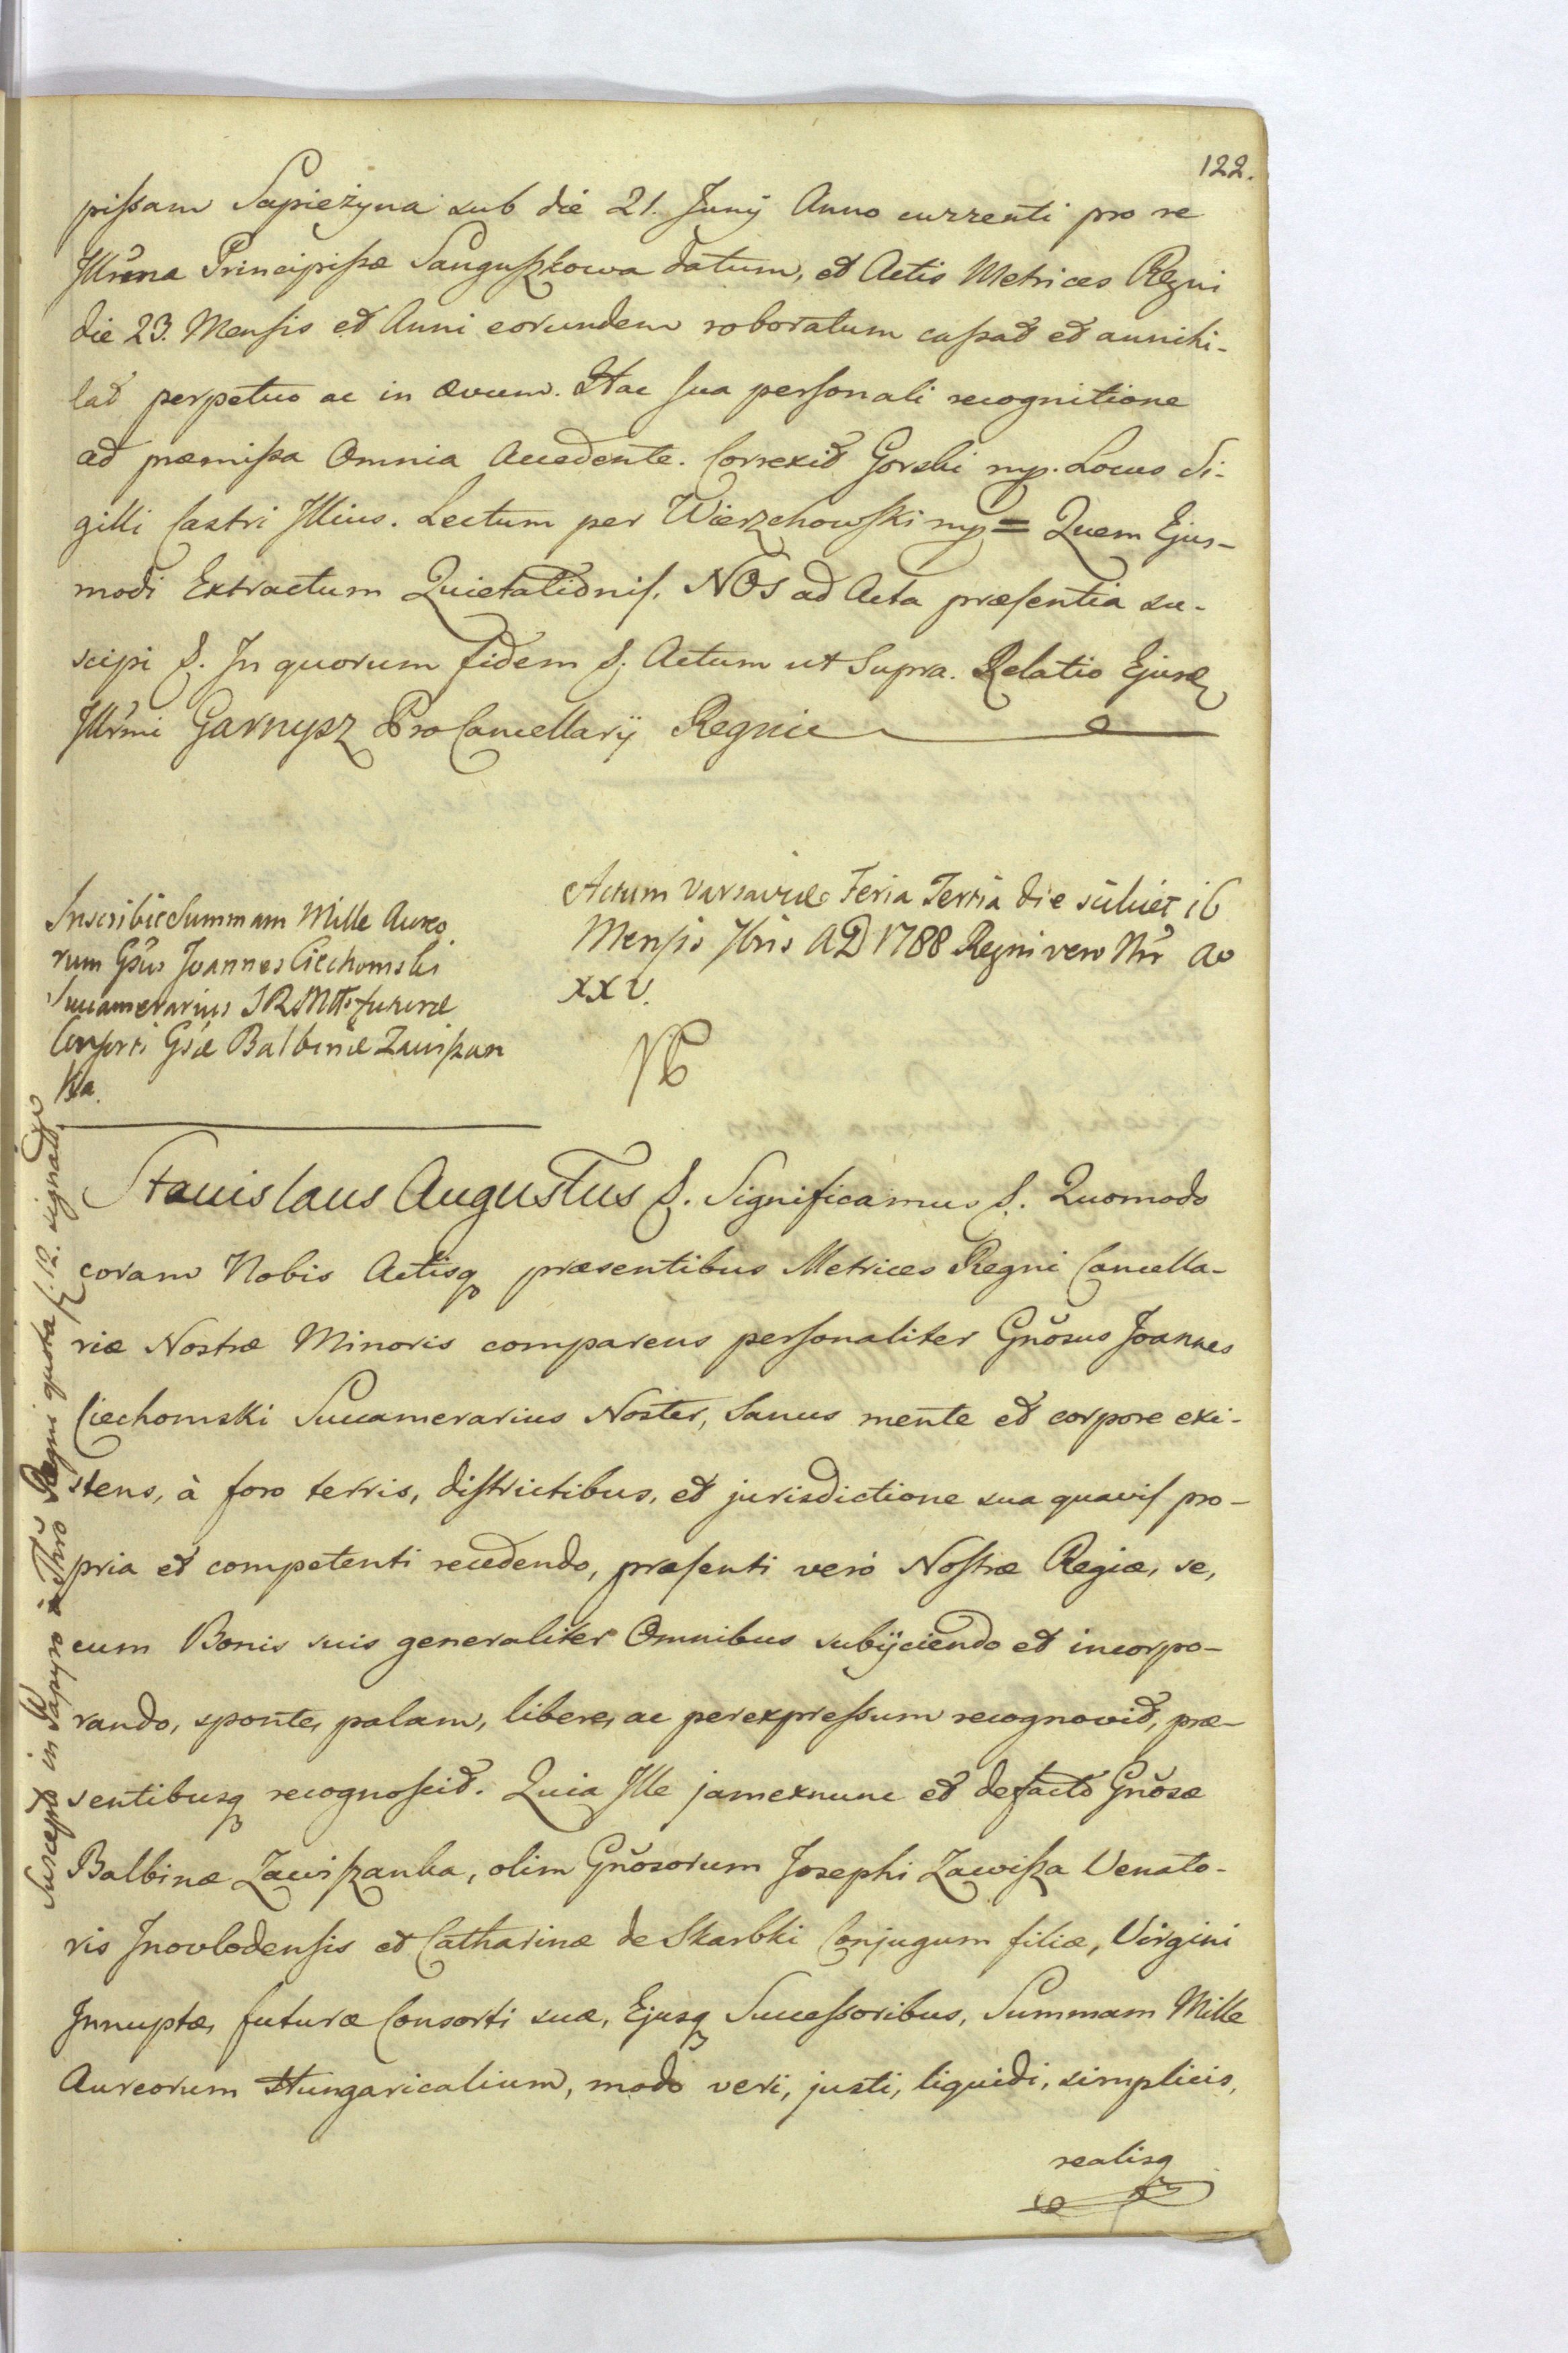 122.
pißam Sapieżyna sub die 21. Junij Anno currenti pro re
Illrma Principißæ Sanguszkowa datum, et Actis Metrices Regni
die 23. Mensis et Anni eorundem roboratum caßat et annihi-
lat perpetuo ac in ævum. Hac sua personali recognitione
ad præmißa Omnia Accedente. Correxit Gorski mp. Locus Si-
gilli Castri Illius. Lectum per Wierzchowski mp = Quem Ejus-
modi Extractum Quietationis, NOS ad Acta præsentia su-
scipi &. In quorum fidem &. Actum ut Supra. Relatio Ejusd
Illrmi Garnysz ProCancellarij Regni
Inscribit Summam Mille Aureo
rum Gsus Joannes Ciechomski
Succamerarius SRMtt. futuræ
Consorti Gsæ Balbinæ Zawißan
ka.
Actum Varsaviæ Feria Tertia die scilicet 16
Mensis 7bris AD 1788 Regni vero Nri Ao
XXV.
Suscept in Papyro a Thro Regni quarta fl. 12. signato
Stanislaus Augustus &. Significamus &. Quomodo
coram Nobis Actisq præsentibus Metrices Regni Cancella-
riæ Nostræ Minoris comparens personaliter Gnosus Joannes
Ciechomski Succamerarius Noster, Sanus mente et corpore exi-
stens, à foro terris, districtibus, et jurisdictione sua quavis pro-
pria et competenti recedendo, præsenti verò Nostræ Regiæ, se,
cum Bonis suis generaliter Omnibus subijciendo et incorpo-
rando, sponte, palam, libere, ac perexpressum recognovit, præ-
sentibusq recognoscit. Quia Ille jamexnunc et defacto Gnosæ
Balbinæ Zawißanka, olim Gnosorum Josephi Zawißa Venato-
ris Inovlodensis et Catharinæ de Skarbki Conjugum filiæ, Virgini
Innuptæ, futuræ Consorti suæ, Ejusq Succeßoribus, Summam Mille
Aureorum Hungaricalium, modo veri, justi, liquidi, simplicis,
realisq